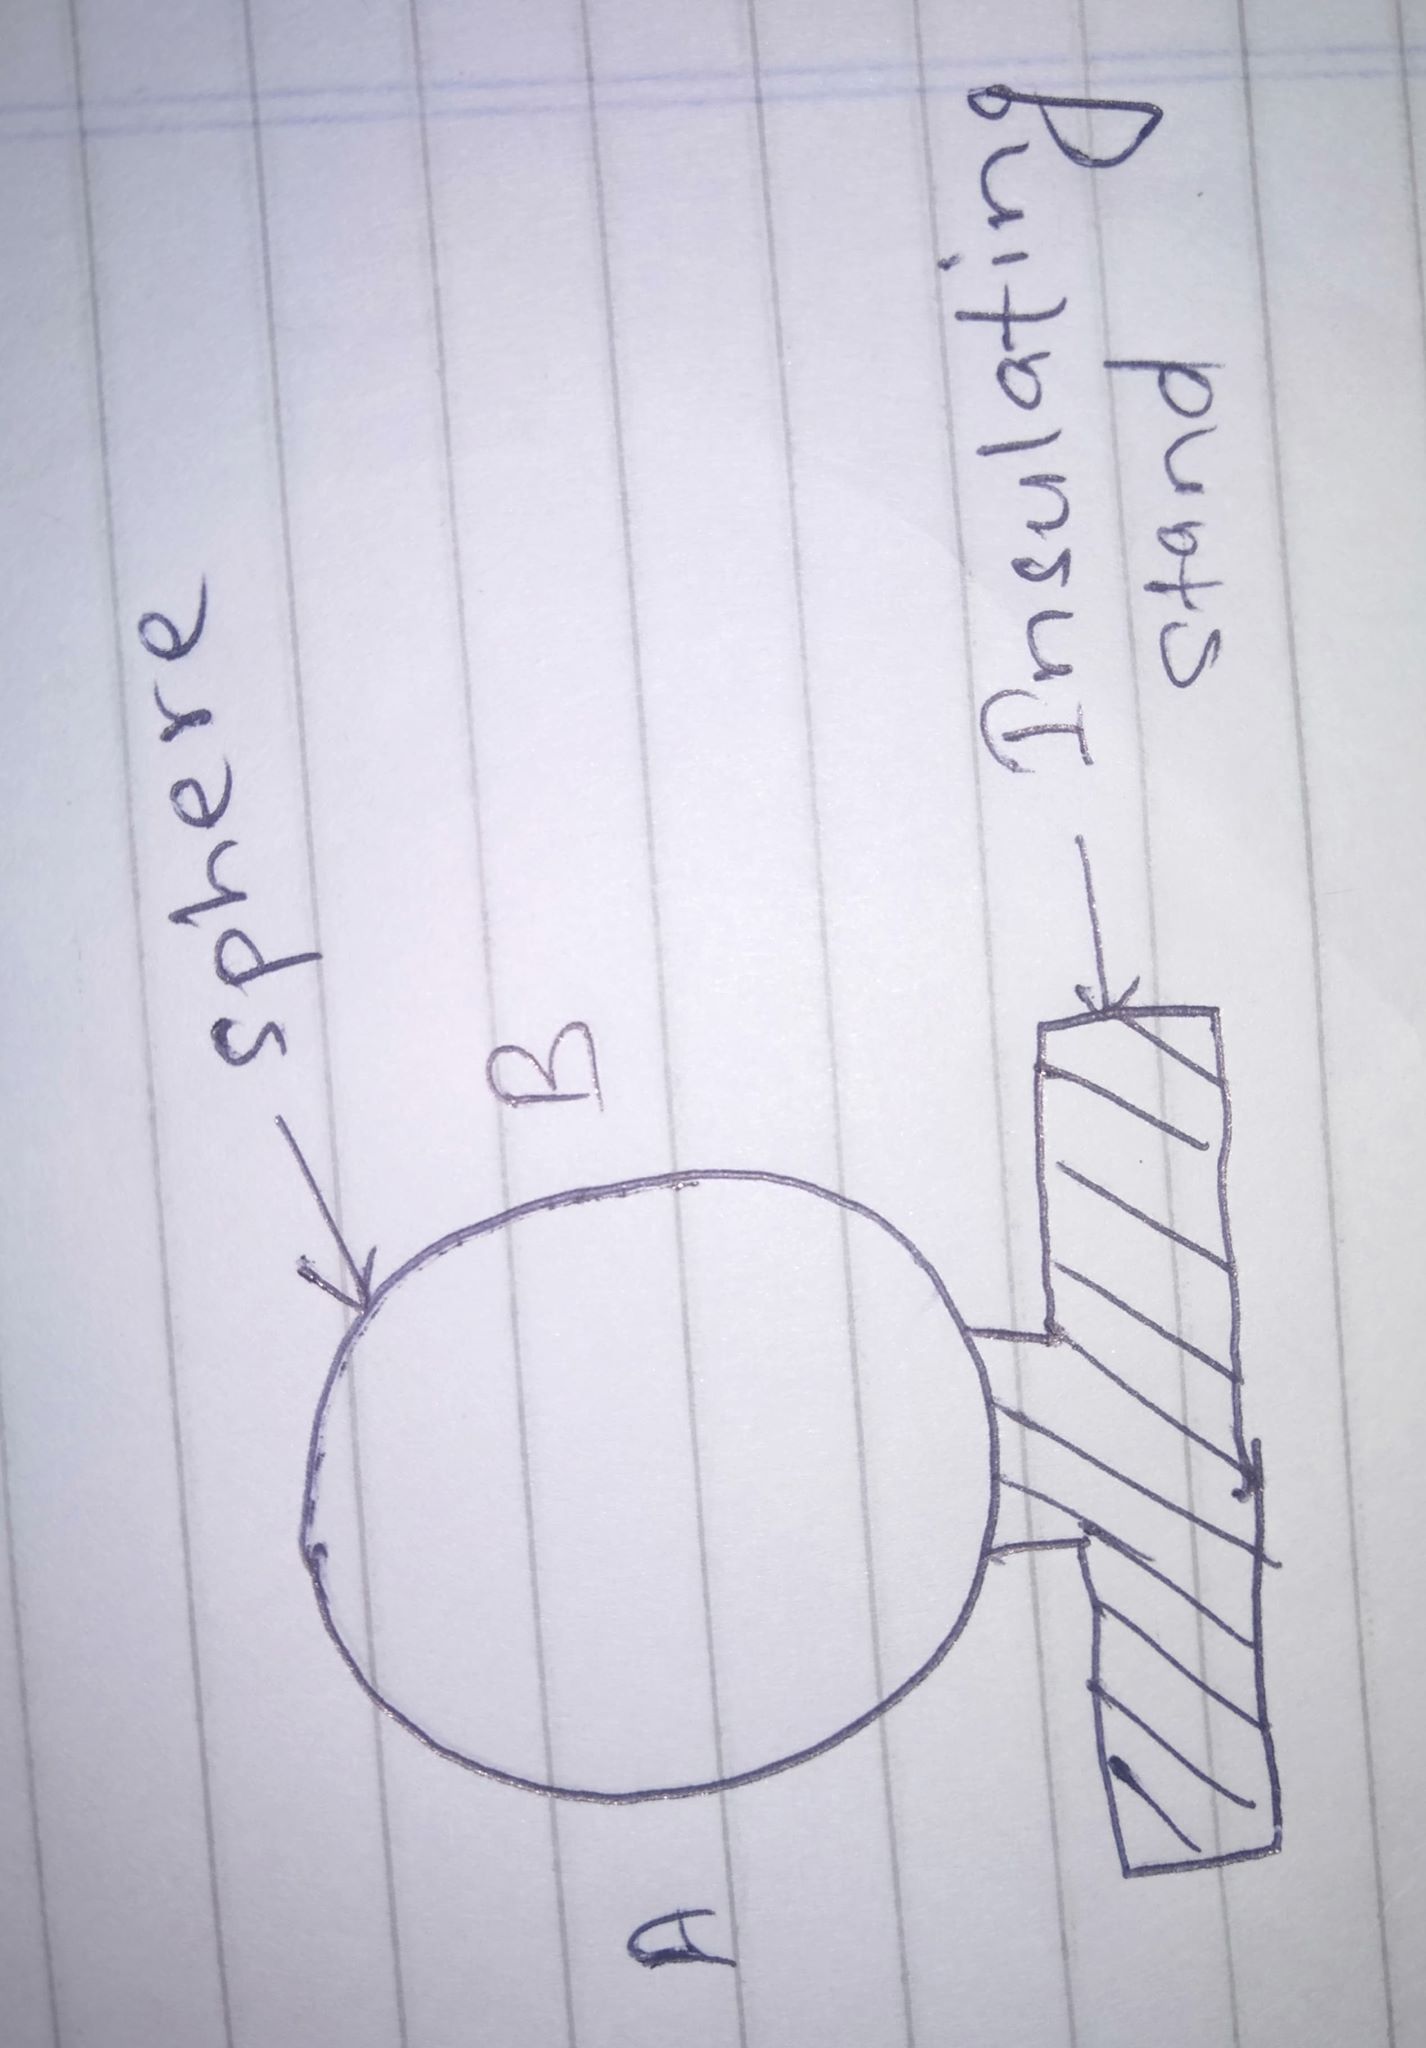 sphere
B
A
Insulating
stand